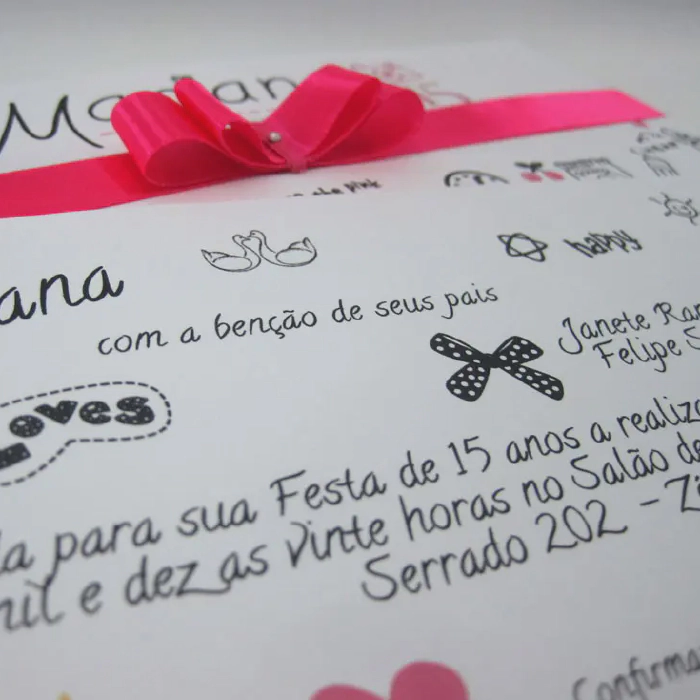 Marian
the pink
happy
ana
com a benção de seus pais
Janete Ra
Felipe S
Loves
da para sua Festa de 15 anos a realiz
mil e dez as vinte horas no Salão de
Serrado 202 - Zi
Confirma